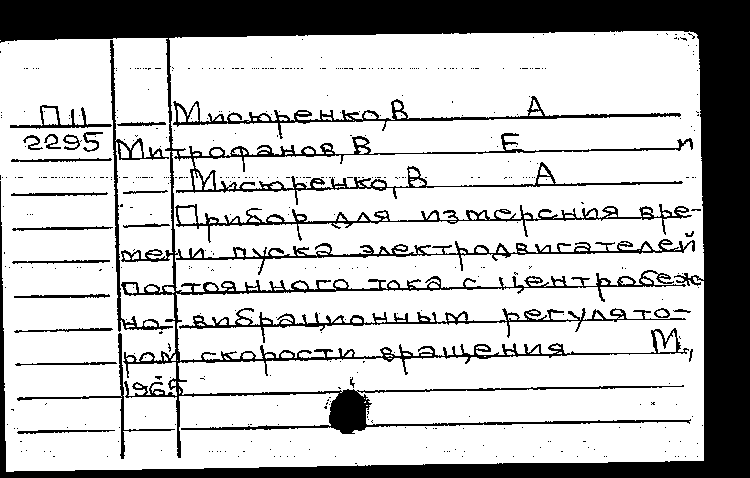 П11 Мисюренко, В А
2295 Митрофанов, В Е и
Мисюренко, В А
Прибор для измерения вре-
мени пуска электродвигателей
постоянного тока с центробеж
но-вибрационным регулято-
ром скорости вращения. М.,
1965